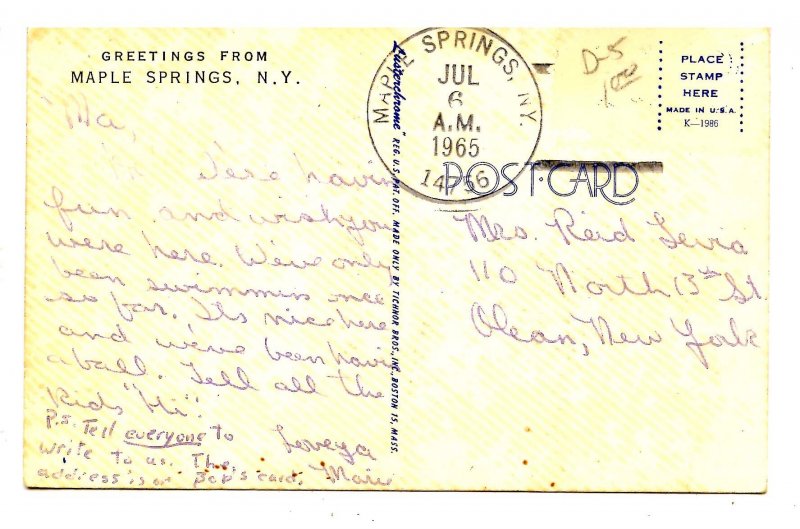 GREETINGS FROM
MAPLE SPRINGS, N.Y.
Ma,
Hi. We're havin
fun and wish you
were here. We've only
been swimmin once
so far. Its nice here
and we've been havin
a ball. Tell all the
Kids "Hi".
Loveya
P.S. Tell everyone to
write to us. The
address is on card.
"Lusterchrome" REG. U.S. PAT. OFF. MADE ONLY BY TICHNOR BROS., INC., BOSTON 15, MASS.
MAPLE SPRINGS, NY.
JUL
6
A.M.
1965
14756
D-5
1.00
PLACE
STAMP
HERE
MADE IN U.S.A.
K-1986
POST·CARD
Mrs. Reid
110 North 13th St.
Olean, New York